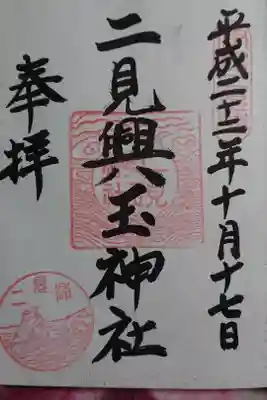 平成二十二年十月十七日
二見興玉神社
奉拝